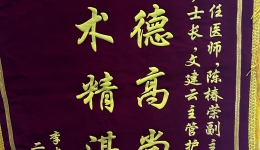 任医师,陈椿荣副主
士长,文建云主管护
德高尚
术精湛
李
二